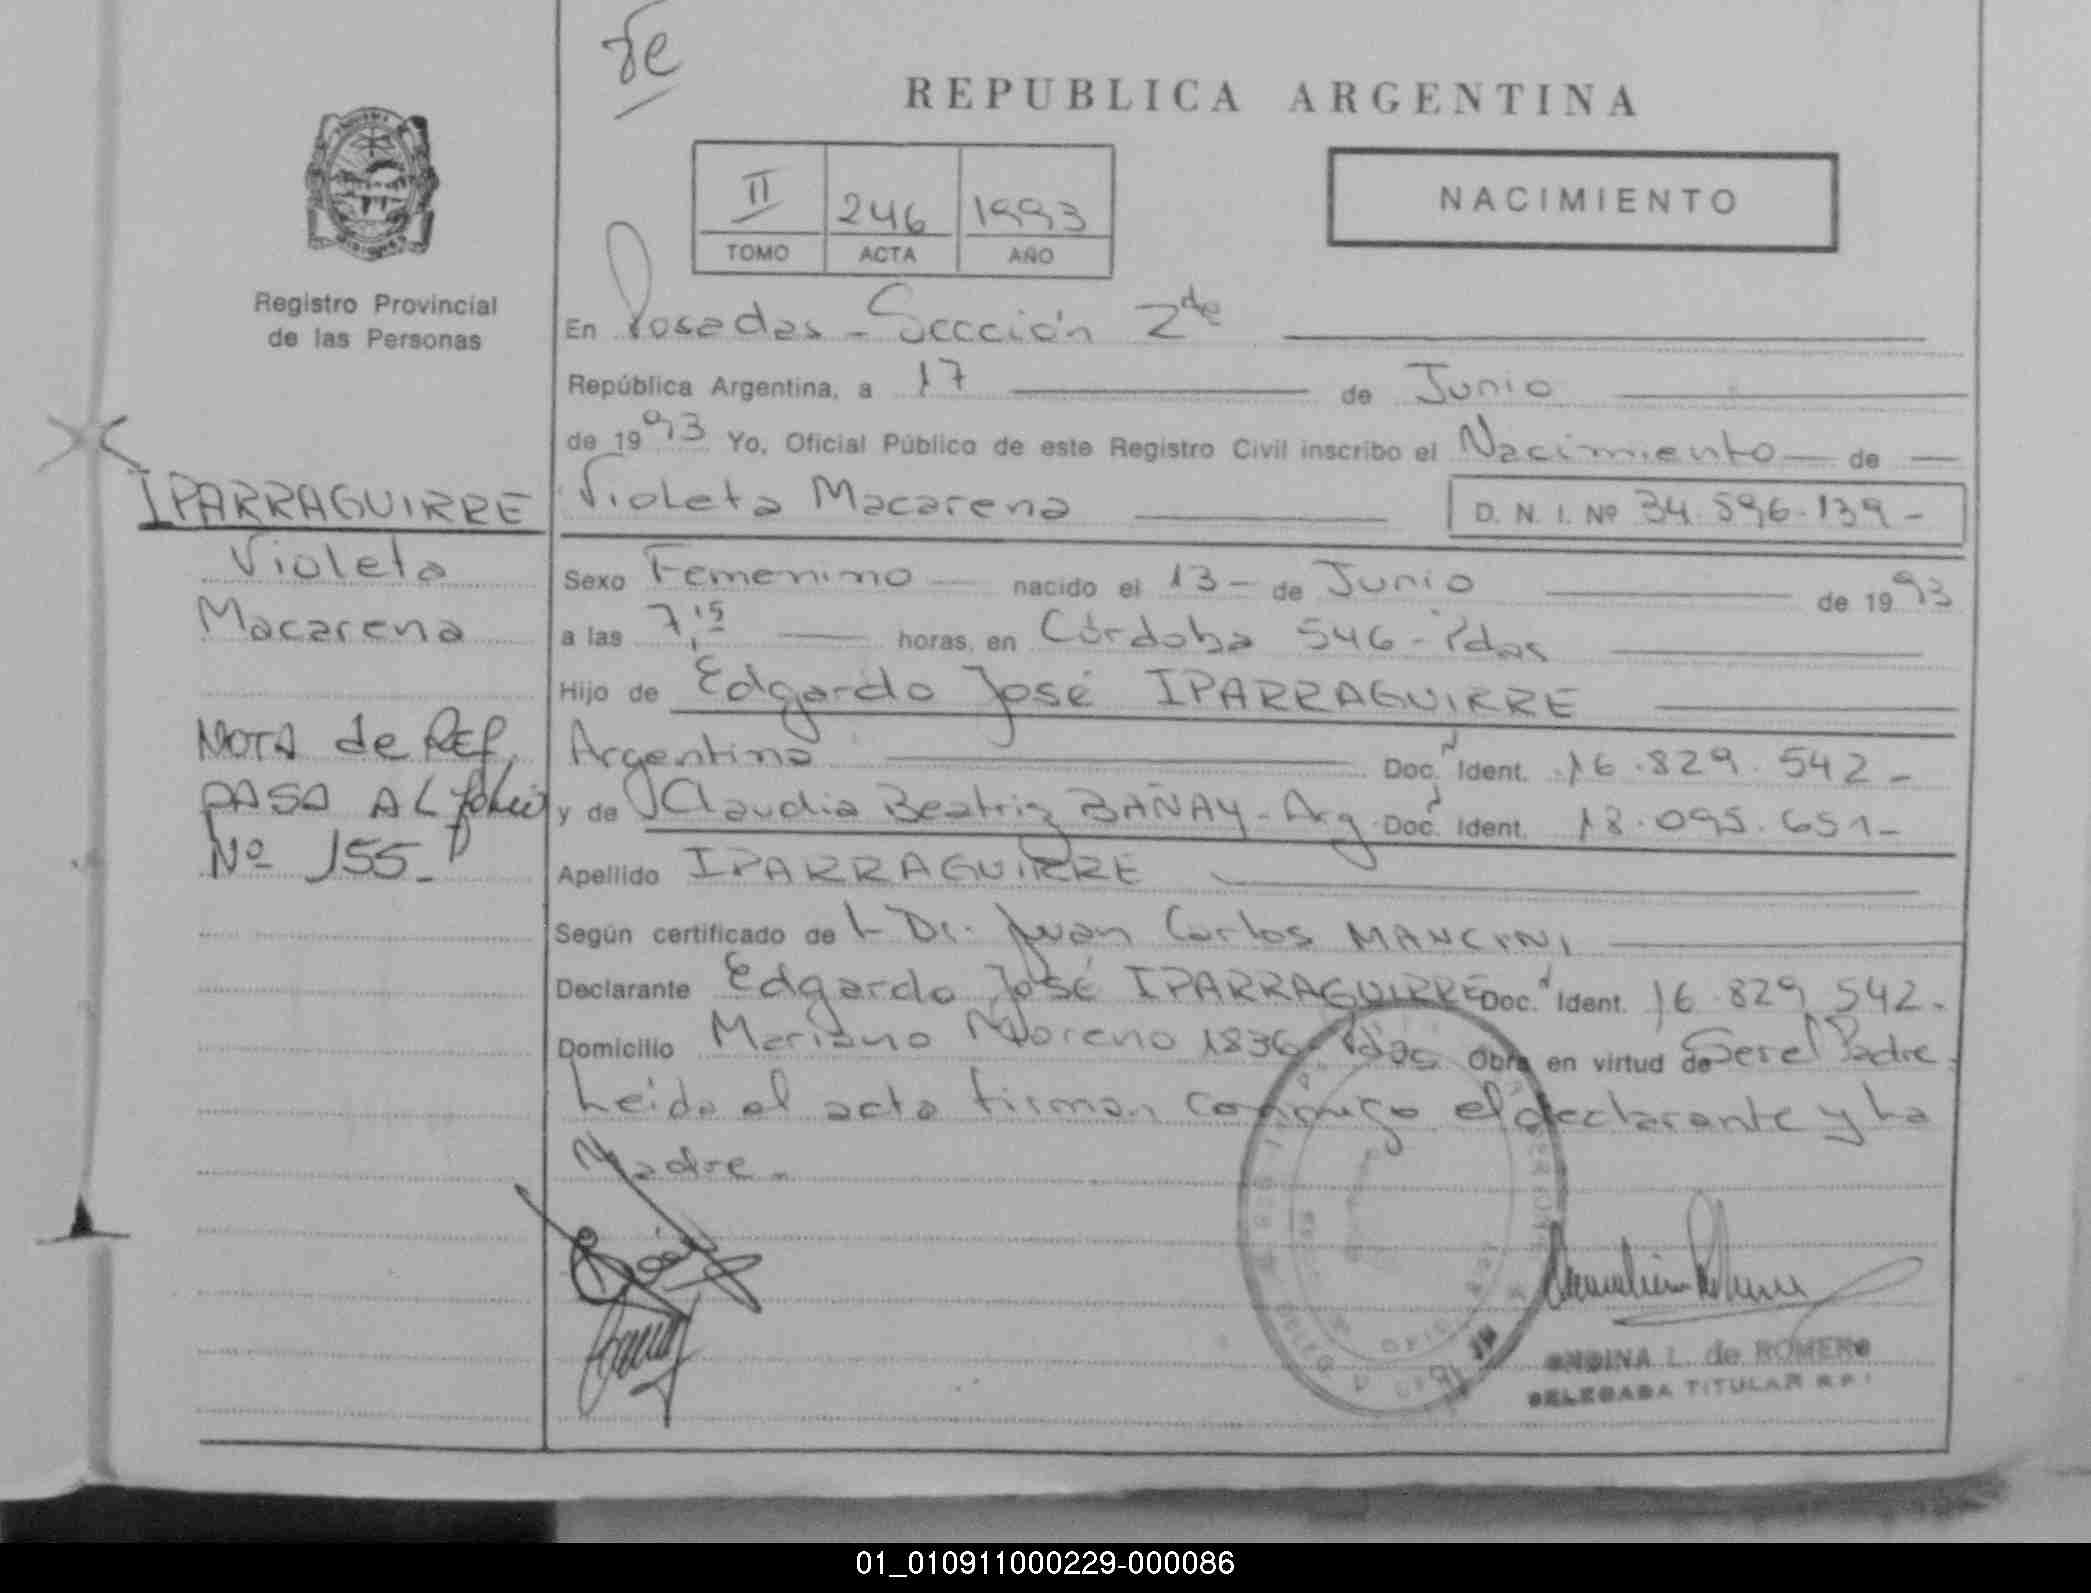 Fe
REPUBLICA ARGENTINA
II 246 1993
TOMO ACTA AÑO
NACIMIENTO
Registro Provincial
de las Personas
En Posadas - Sección 2da
República Argentina, a 17 de Junio
de 1993 Yo, Oficial Público de este Registro Civil inscribo el Nacimiento de
Violeta Macarena D. N. I. Nº 34.596.139-
Sexo Femenino nacido el 13 - de Junio de 1993
a las 7,15 horas, en Córdoba 546 - Pdas
Hijo de Edgardo José IPARRAGUIRRE
Argentino Doc. Ident. 16.829.542-
y de Claudia Beatriz BAÑAY - Arg. Doc. Ident. 18.095.651-
Apellido IPARRAGUIRRE
Según certificado de L Dr. Juan Carlos MANCINI
Declarante Edgardo José IPARRAGUIRRE Doc. Ident. 16.829.542-
Domicilio Mariano Moreno 1836 - Pdas Obra en virtud de Ser el Padre.
Leida el acta firman conmigo el declarante y La
Madre.-
IPARRAGUIRRE
Violeta
Macarena
NOTA de REF.
PASA AL folio
Nº 155-
ONDINA L. de ROMERO
DELEGADA TITULAR R.P.
01_010911000229-000086